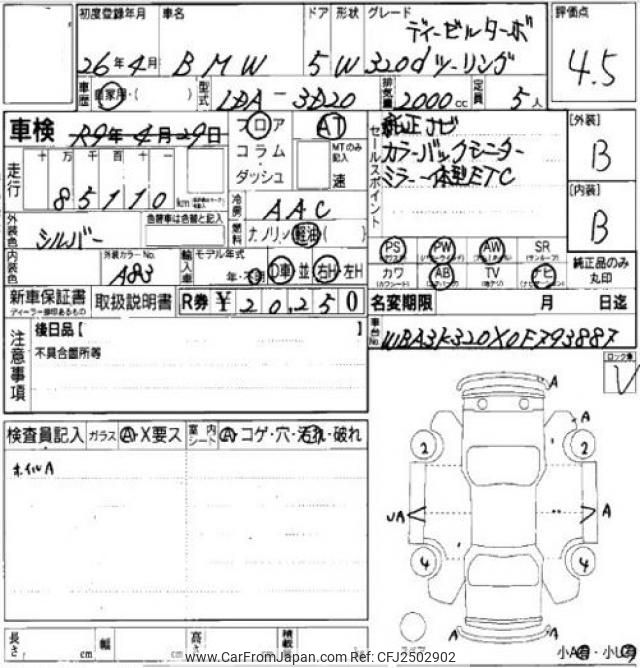 初度登録年月 車名 ドア 形状 グレード 評価点
ディーゼルターボ
26年4月 BMW 5 W 320dツーリング 4.5
車歴 自家用・( ) 型式 LDA-3D20 排気量 2000cc 定員 5人
車検 R9年4月29日 フロア AT セールスポイント 純正ナビ [外装]
コラム MTのみ記入 カラーバックモニター B
走行 十 万 千 百 十 一 ダッシュ 速 ミラー一体型ETC
85110 km 冷房 AAC [内装]
外装色 シルバー 色替車は色替と記入 燃料 ガソリン・軽油( ) B
内装色 外装カラーNo. A83 輸入車 モデル年式 年・不明 D車 並 右H・左H
PS PW AW SR (サンルーフ) 純正品のみ丸印
カワ AB (エアバック) TV ナビ
新車保証書 取扱説明書 R券 ¥20,250 名変期限 月 日迄
ディーラー捺印あるもの
注意事項 後日品【 】 車台No. WBA3K320X0F793887
不具合箇所等 ロック車
検査員記入 ガラス A・X要ス 室内シート A・コゲ・穴・汚れ・破れ
ホイルA
A
A
2 2
UA A
4 4
A
長さ cm 幅 cm 高さ cm 積載 小A・小U
www.CarFromJapan.com Ref: CFJ2502902